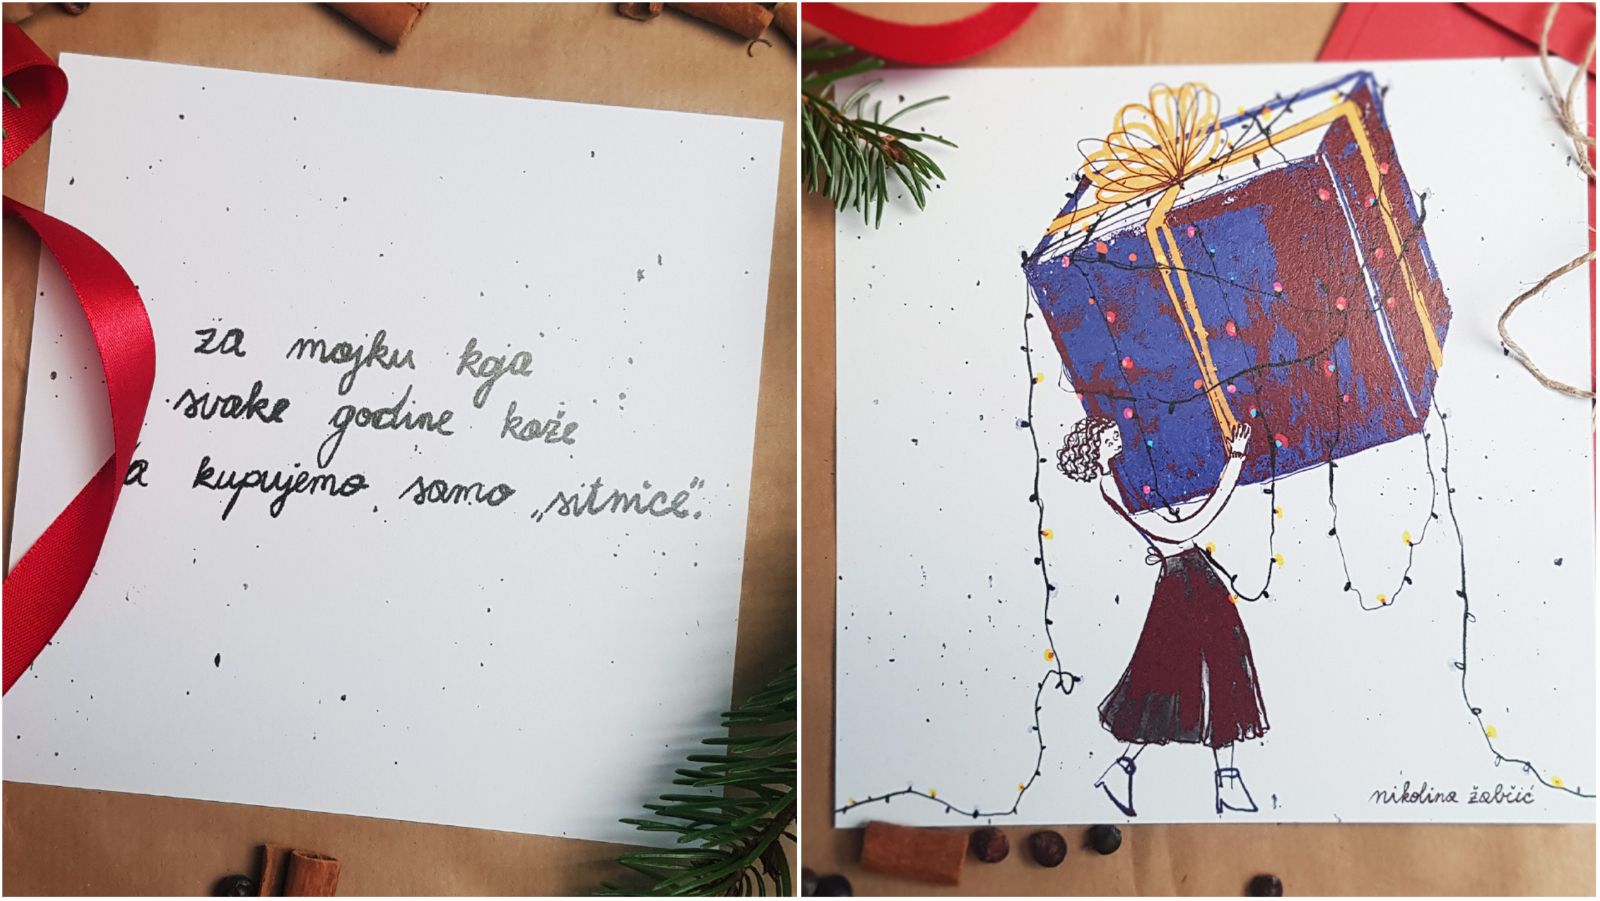 za majku koja
svake godine kaže
da kupujemo samo „sitnice“.
nikolina žabčić